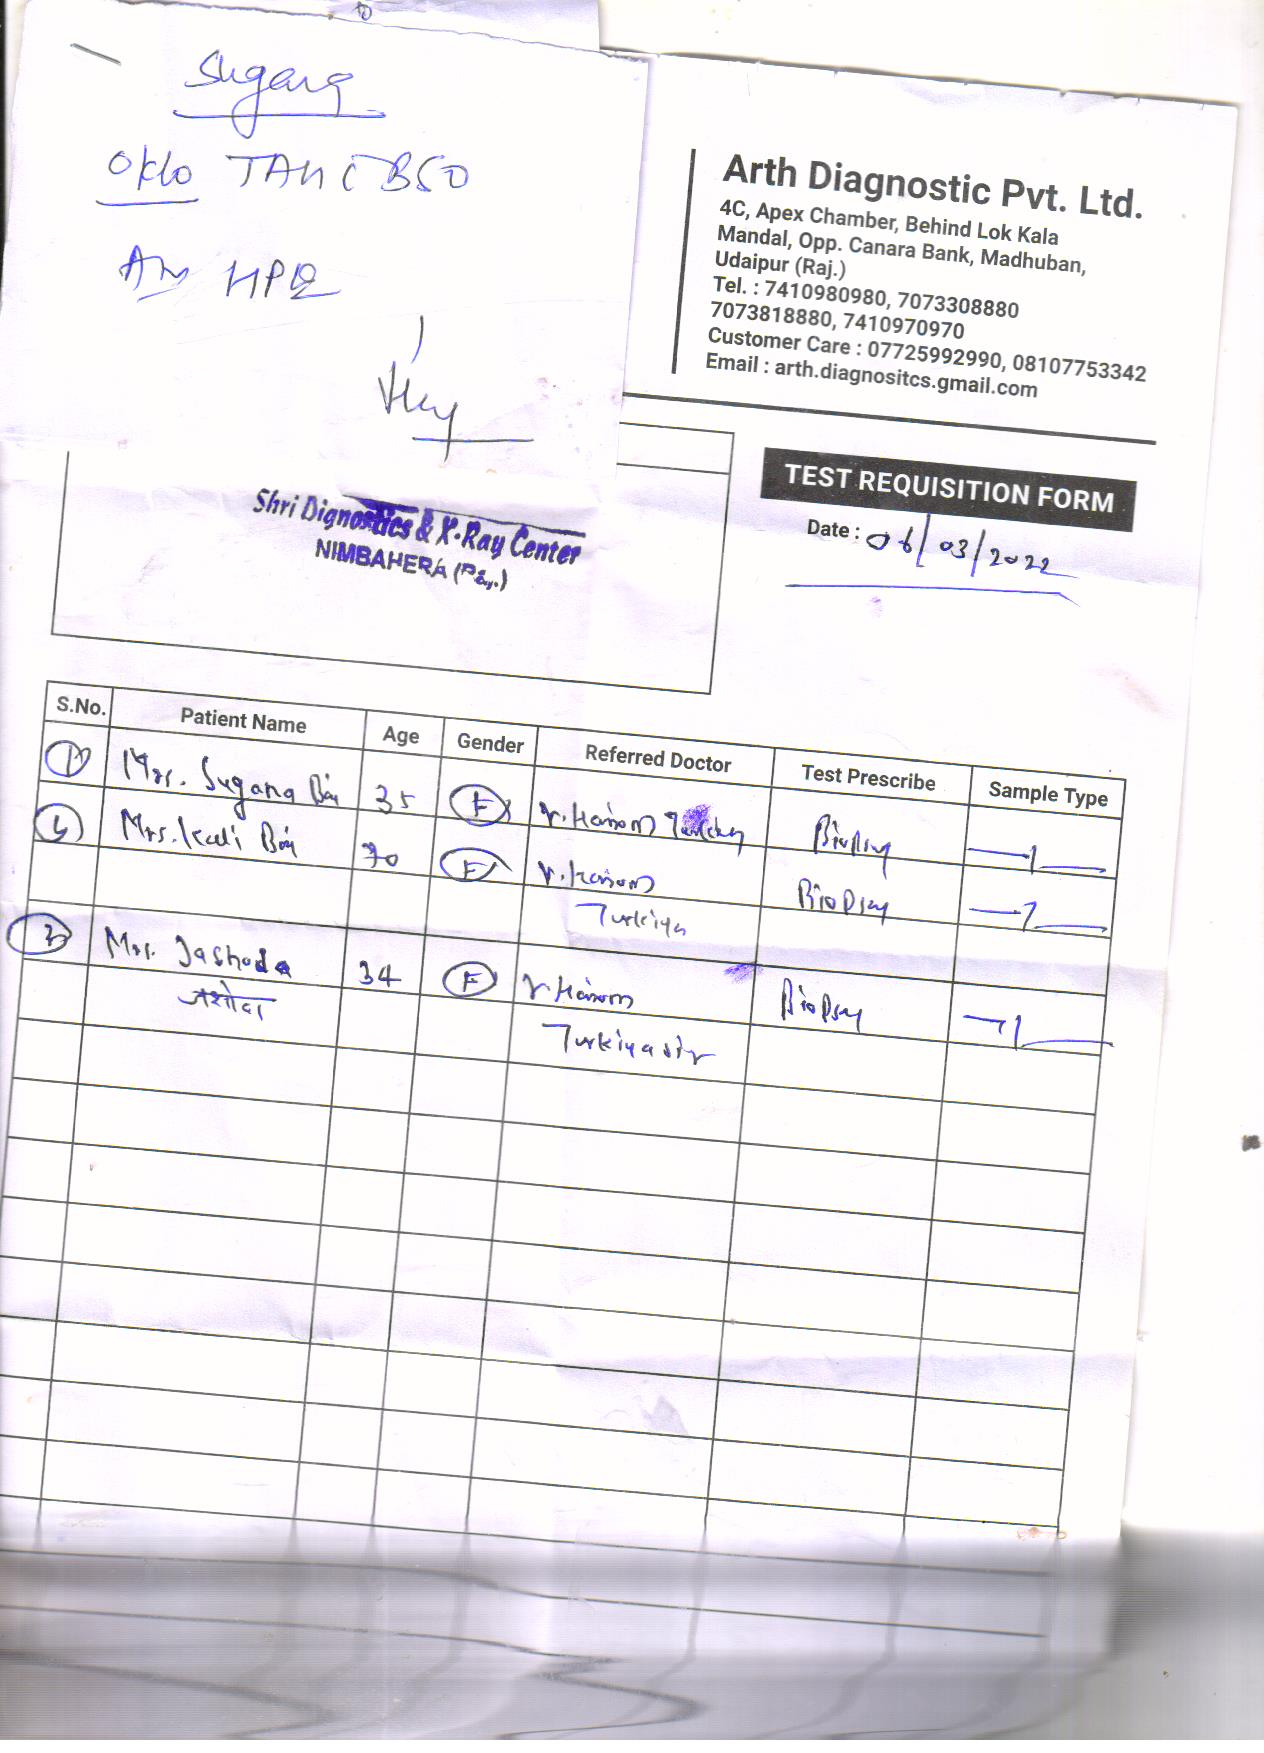 Sugana
Oklo TAH C BSO
Adv HPE
Arth Diagnostic Pvt. Ltd.
4C, Apex Chamber, Behind Lok Kala
Mandal, Opp. Canara Bank, Madhuban,
Udaipur (Raj.)
Tel. : 7410980980, 7073308880
7073818880, 7410970970
Customer Care : 07725992990, 08107753342
Email : arth.diagnositcs.gmail.com
TEST REQUISITION FORM
Date : 06/03/2022
Shri Dignostics & X-Ray Center
NIMBAHERA (Raj.)
S.No. Patient Name Age Gender Referred Doctor Test Prescribe Sample Type
1 Mrs. Sugana Bai 35 F Biopsy
Mrs. Kali Bai 70 F Biopsy
Turkiya
Mrs. Jashoda 34 F Biopsy
जशोदा Turkiya sir